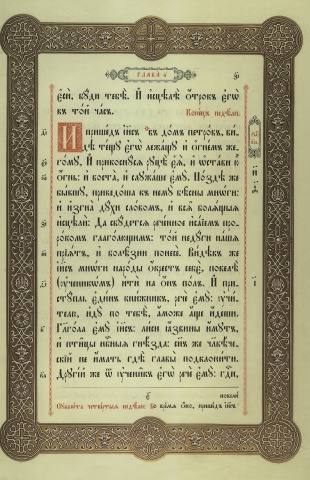 ГЛАВА́ и҃
є҆сѝ, бꙋ́ди тебѣ̀. И҆ и҆сцѣлѣ̀ ѻ҆́трокъ є҆гѡ̀
въ то́й ча́съ. Коне́цъ недѣ́ли:
И҆ прише́дъ і҆и҃съ въ до́мъ петро́въ, ви́-
дѣ те́щꙋ є҆гѡ̀ лежа́щꙋ и҆ ѻ҆гне́мъ же-
го́мꙋ, И҆ прикоснꙋ́сѧ рꙋцѣ̀ є҆ѧ̀, и҆ ѡ҆ста́ви ю҆̀
ѻ҆́гнь: и҆ воста̀, и҆ слꙋжа́ше є҆мꙋ̀. По́здѣ же
бы́вшꙋ, приведо́ша къ немꙋ̀ бѣ́сны мнѡ́ги:
и҆ и҆згна̀ дꙋ́хи сло́вомъ, и҆ всѧ̑ болѧ́щыѧ
и҆сцѣлѝ: Да сбꙋ́детсѧ рече́нное и҆са́їемъ про-
ро́комъ глаго́лющимъ: то́й недꙋ́ги на́шѧ
прїѧ́тъ, и҆ болѣ̑зни понесѐ. Ви́дѣвъ же
і҆и҃съ мно́ги наро́ды ѻ҆́крестъ себє̀, повелѣ̀
(ᲂу҆ченикѡ́мъ) и҆тѝ на ѻ҆́нъ по́лъ. И҆ при-
стꙋ́пль є҆ди́нъ кни́жникъ, речѐ є҆мꙋ̀: ᲂу҆чи́-
телю, и҆дꙋ̀ по тебѣ̀, а҆́може а҆́ще и҆́деши.
Глаго́ла є҆мꙋ̀ і҆и҃съ: ли́си ꙗ҆́звины и҆́мꙋтъ,
и҆ пти̑цы небє́сныѧ гнѣ́зда: сн҃ъ же чл҃вѣ́че-
скїй не и҆́мать гдѣ̀ главы̀ подклони́ти.
Дрꙋгі́й же ѿ ᲂу҆чени̑къ є҆гѡ̀ речѐ є҆мꙋ̀: гдⷭ҇и,
повели́
Сꙋббѡ́та четве́ртыѧ недѣ́ли: Во вре́мѧ ѻ҆́но, прише́дъ і҆и҃съ